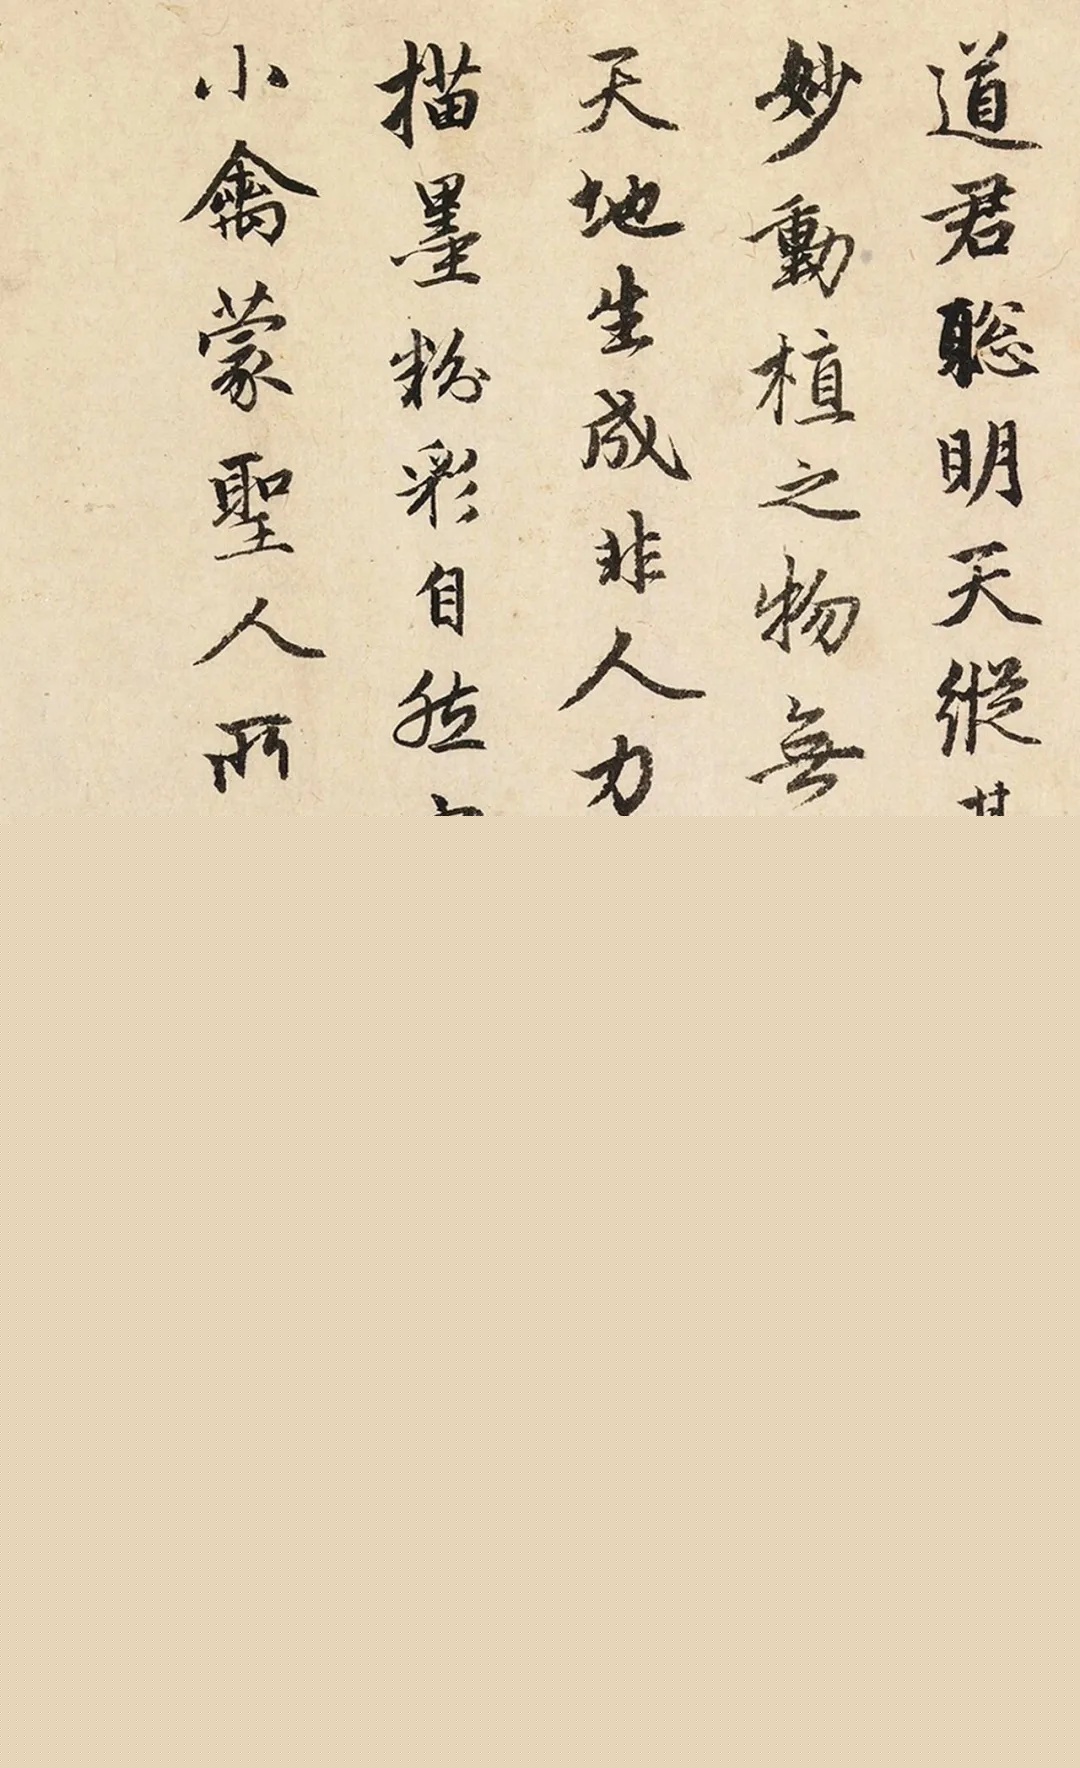 道君聰明天縱
妙動植之物無
天地生成非人力
描墨粉彩自然
小禽蒙聖人所